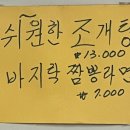 쉬~원한 조개탕
₩13.000
바지락 짬뽕라면
₩7.000